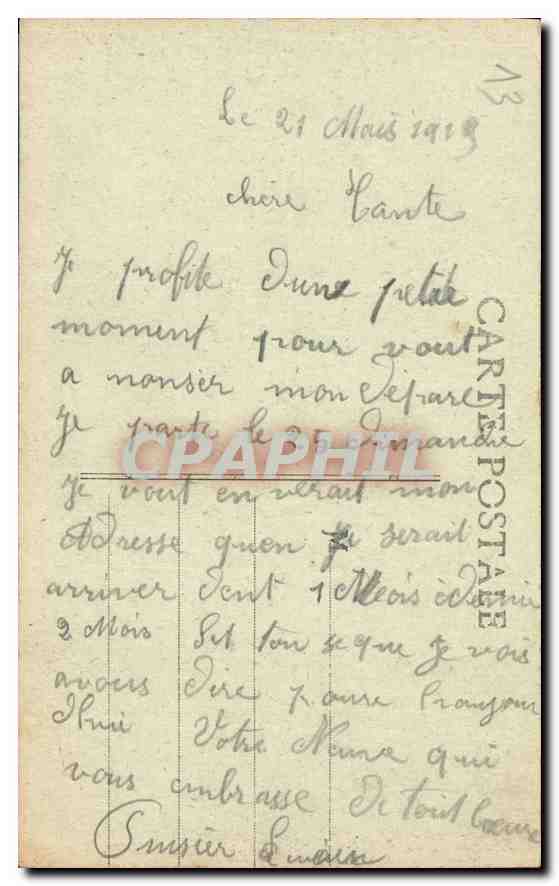 13
Le 21 Mais 1919
chère Tante
Je profite d'une petite
moment pour vout
a nonser mon Départ
Je parte le 25 dimanche
Je vout en verait mon
Adresse quen Je serait
arriver dent 1 Mois è demie
2 Mois Set tou se que Je vois
avous dire poure
Votre Neuve qui
vous embrasse De tout Coeure
CARTE POSTALE
CPAPHIL